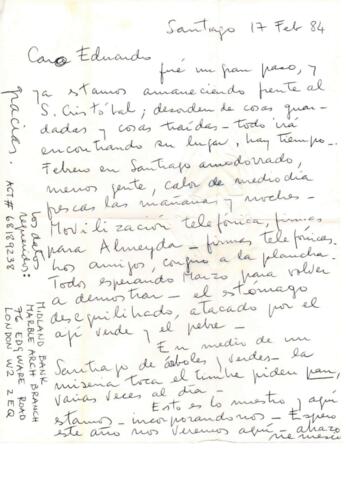 Santiago 17 Feb 84
Caro Eduardo
fué un gran paso, y
ya estamos amaneciendo frente al
S. Cristóbal; desorden de cosas guar-
dadas y cosas traídas - todo irá
encontrando su lugar, hay tiempo -
Febrero en Santiago amodorrado,
menos gente, calor de mediodía
frescas las mañanas y noches -
Movilización telefónica, firmas
para Almeyda - firmas telefónicas.
los amigos, congrio a la plancha.
Todos esperando Marzo para volver
a demostrar - el estómago
desequilibrado, atacado por el
ají verde y el pebre -
En medio de un
Santiago de árboles y verdes - la
miseria toca el timbre piden pan,
varias veces al día -
Esto es lo nuestro y aquí
estamos - incorporandonos - Espero
este año nos veremos aquí - abrazo
los datos
requeridos:
MIDLAND BANK
MARBLE ARCH BRANCH
96 EDGWARE ROAD
LONDON W2 2EQ
ACT# 68189238
gracias.